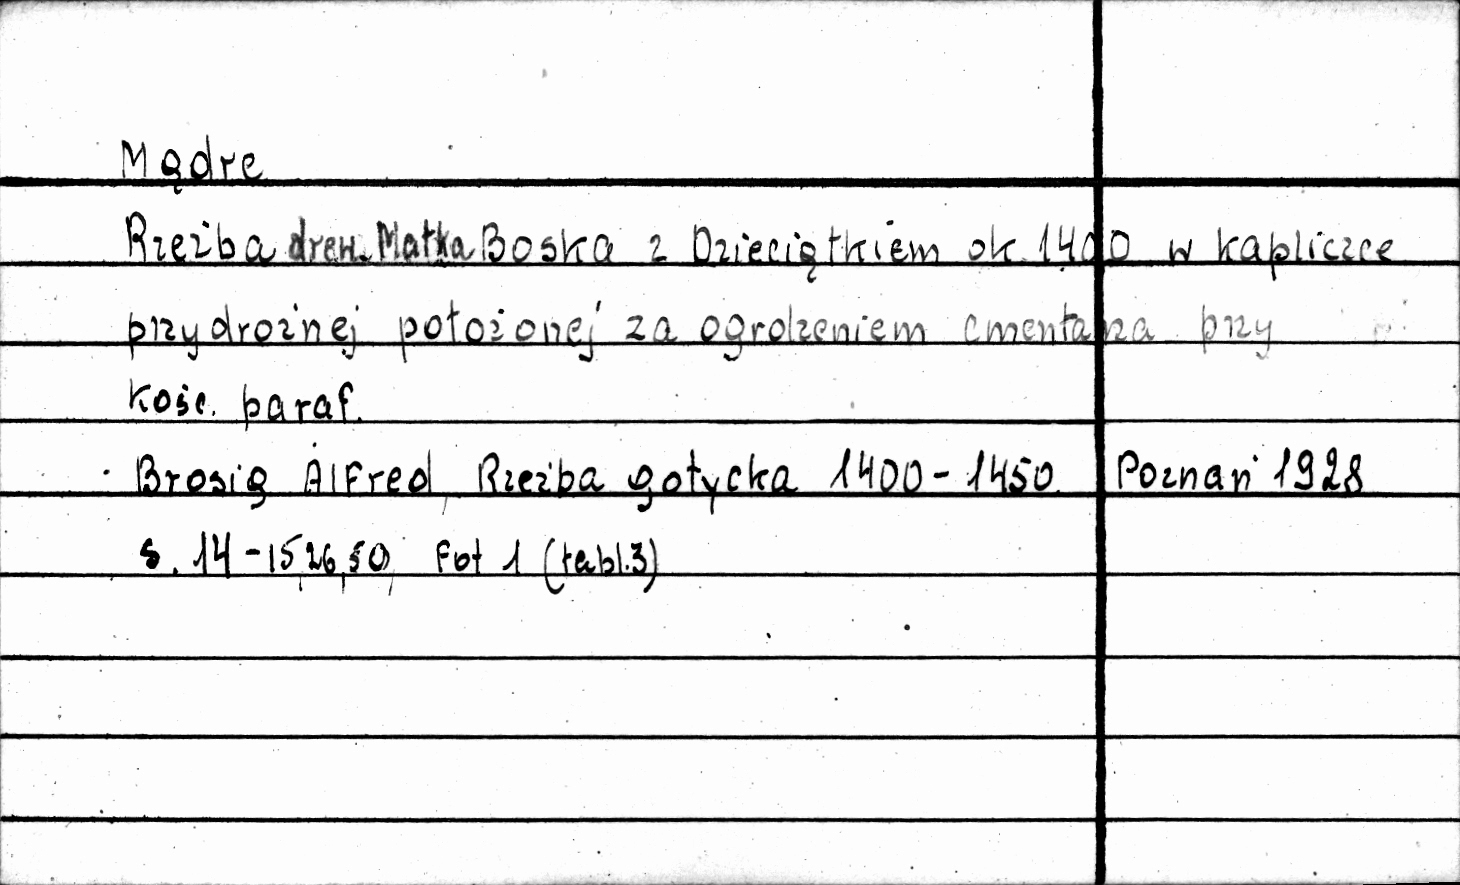 Mądre
Rzeźba drew. Matka Boska z Dzieciątkiem ok. 1400 w kapliczce
przydrożnej położonej za ogrodzeniem cmentarza przy
kośc. paraf.
Brosig Alfred, Rzeźba gotycka 1400-1450. Poznań 1928
s. 14-15, 26, 50, Fot 1 (tabl.3)